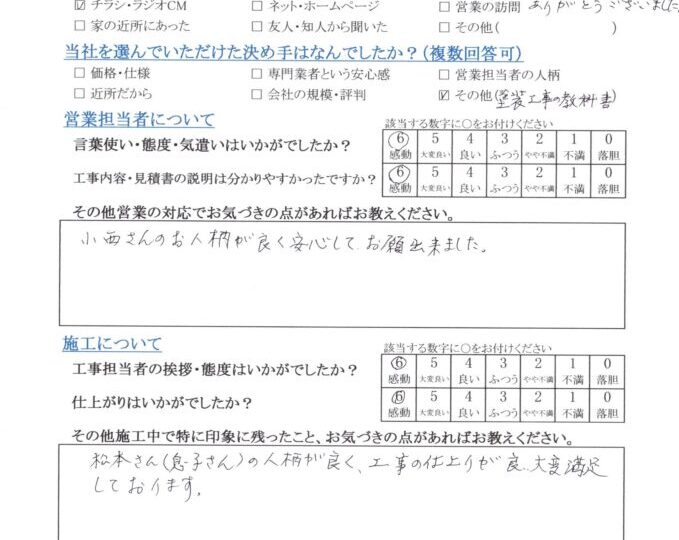 ☑ チラシ・ラジオCM □ ネット・ホームページ □ 営業の訪問 ありがとうございました
□ 家の近所にあった □ 友人・知人から聞いた □ その他( )
当社を選んでいただけた決め手はなんでしたか?(複数回答可)
□ 価格・仕様 □ 専門業者という安心感 □ 営業担当者の人柄
□ 近所だから □ 会社の規模・評判 ☑ その他(塗装工事の教科書)
営業担当者について
該当する数字に○をお付けください
言葉使い・態度・気遣いはいかがでしたか? 6 5 4 3 2 1 0
感動 大変良い 良い ふつう やや不満 不満 落胆
工事内容・見積書の説明は分かりやすかったですか? 6 5 4 3 2 1 0
感動 大変良い 良い ふつう やや不満 不満 落胆
その他営業の対応でお気づきの点があればお教えください。
小西さんのお人柄が良く安心してお願出来ました。
施工について
該当する数字に○をお付けください
工事担当者の挨拶・態度はいかがでしたか? 6 5 4 3 2 1 0
感動 大変良い 良い ふつう やや不満 不満 落胆
仕上がりはいかがでしたか? 6 5 4 3 2 1 0
感動 大変良い 良い ふつう やや不満 不満 落胆
その他施工中で特に印象に残ったこと、お気づきの点があればお教えください。
松本さん(息子さん)の人柄が良く、工事の仕上りが良、大変満足
しております。